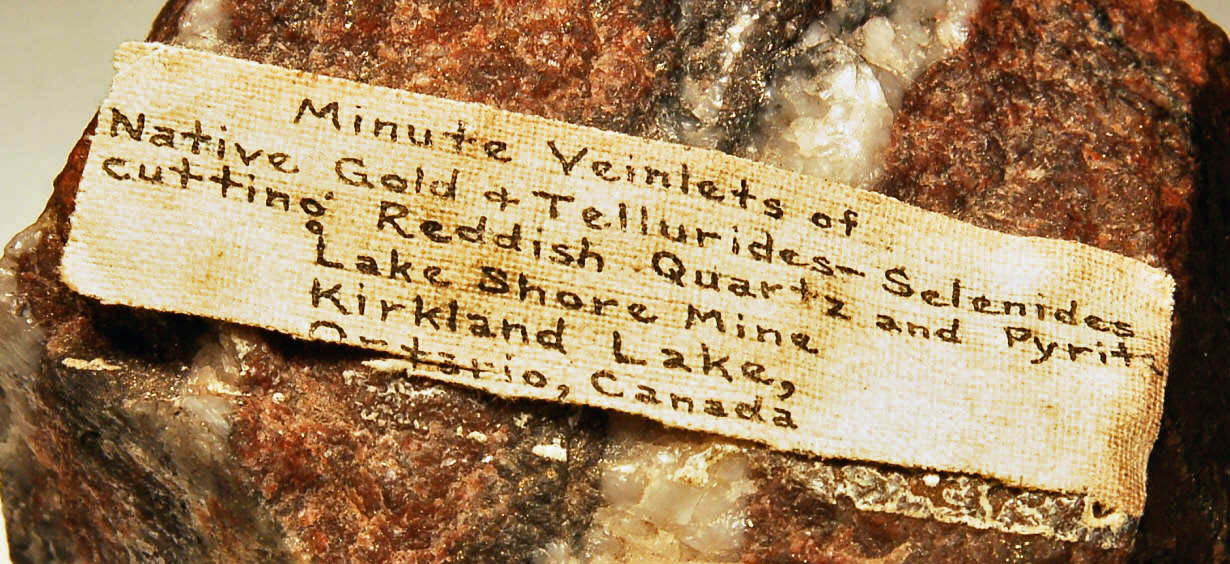 Minute Veinlets of
Native Gold & Tellurides-Selenides
cutting Reddish Quartz and Pyrite
Lake Shore Mine
Kirkland Lake,
Ontario, Canada